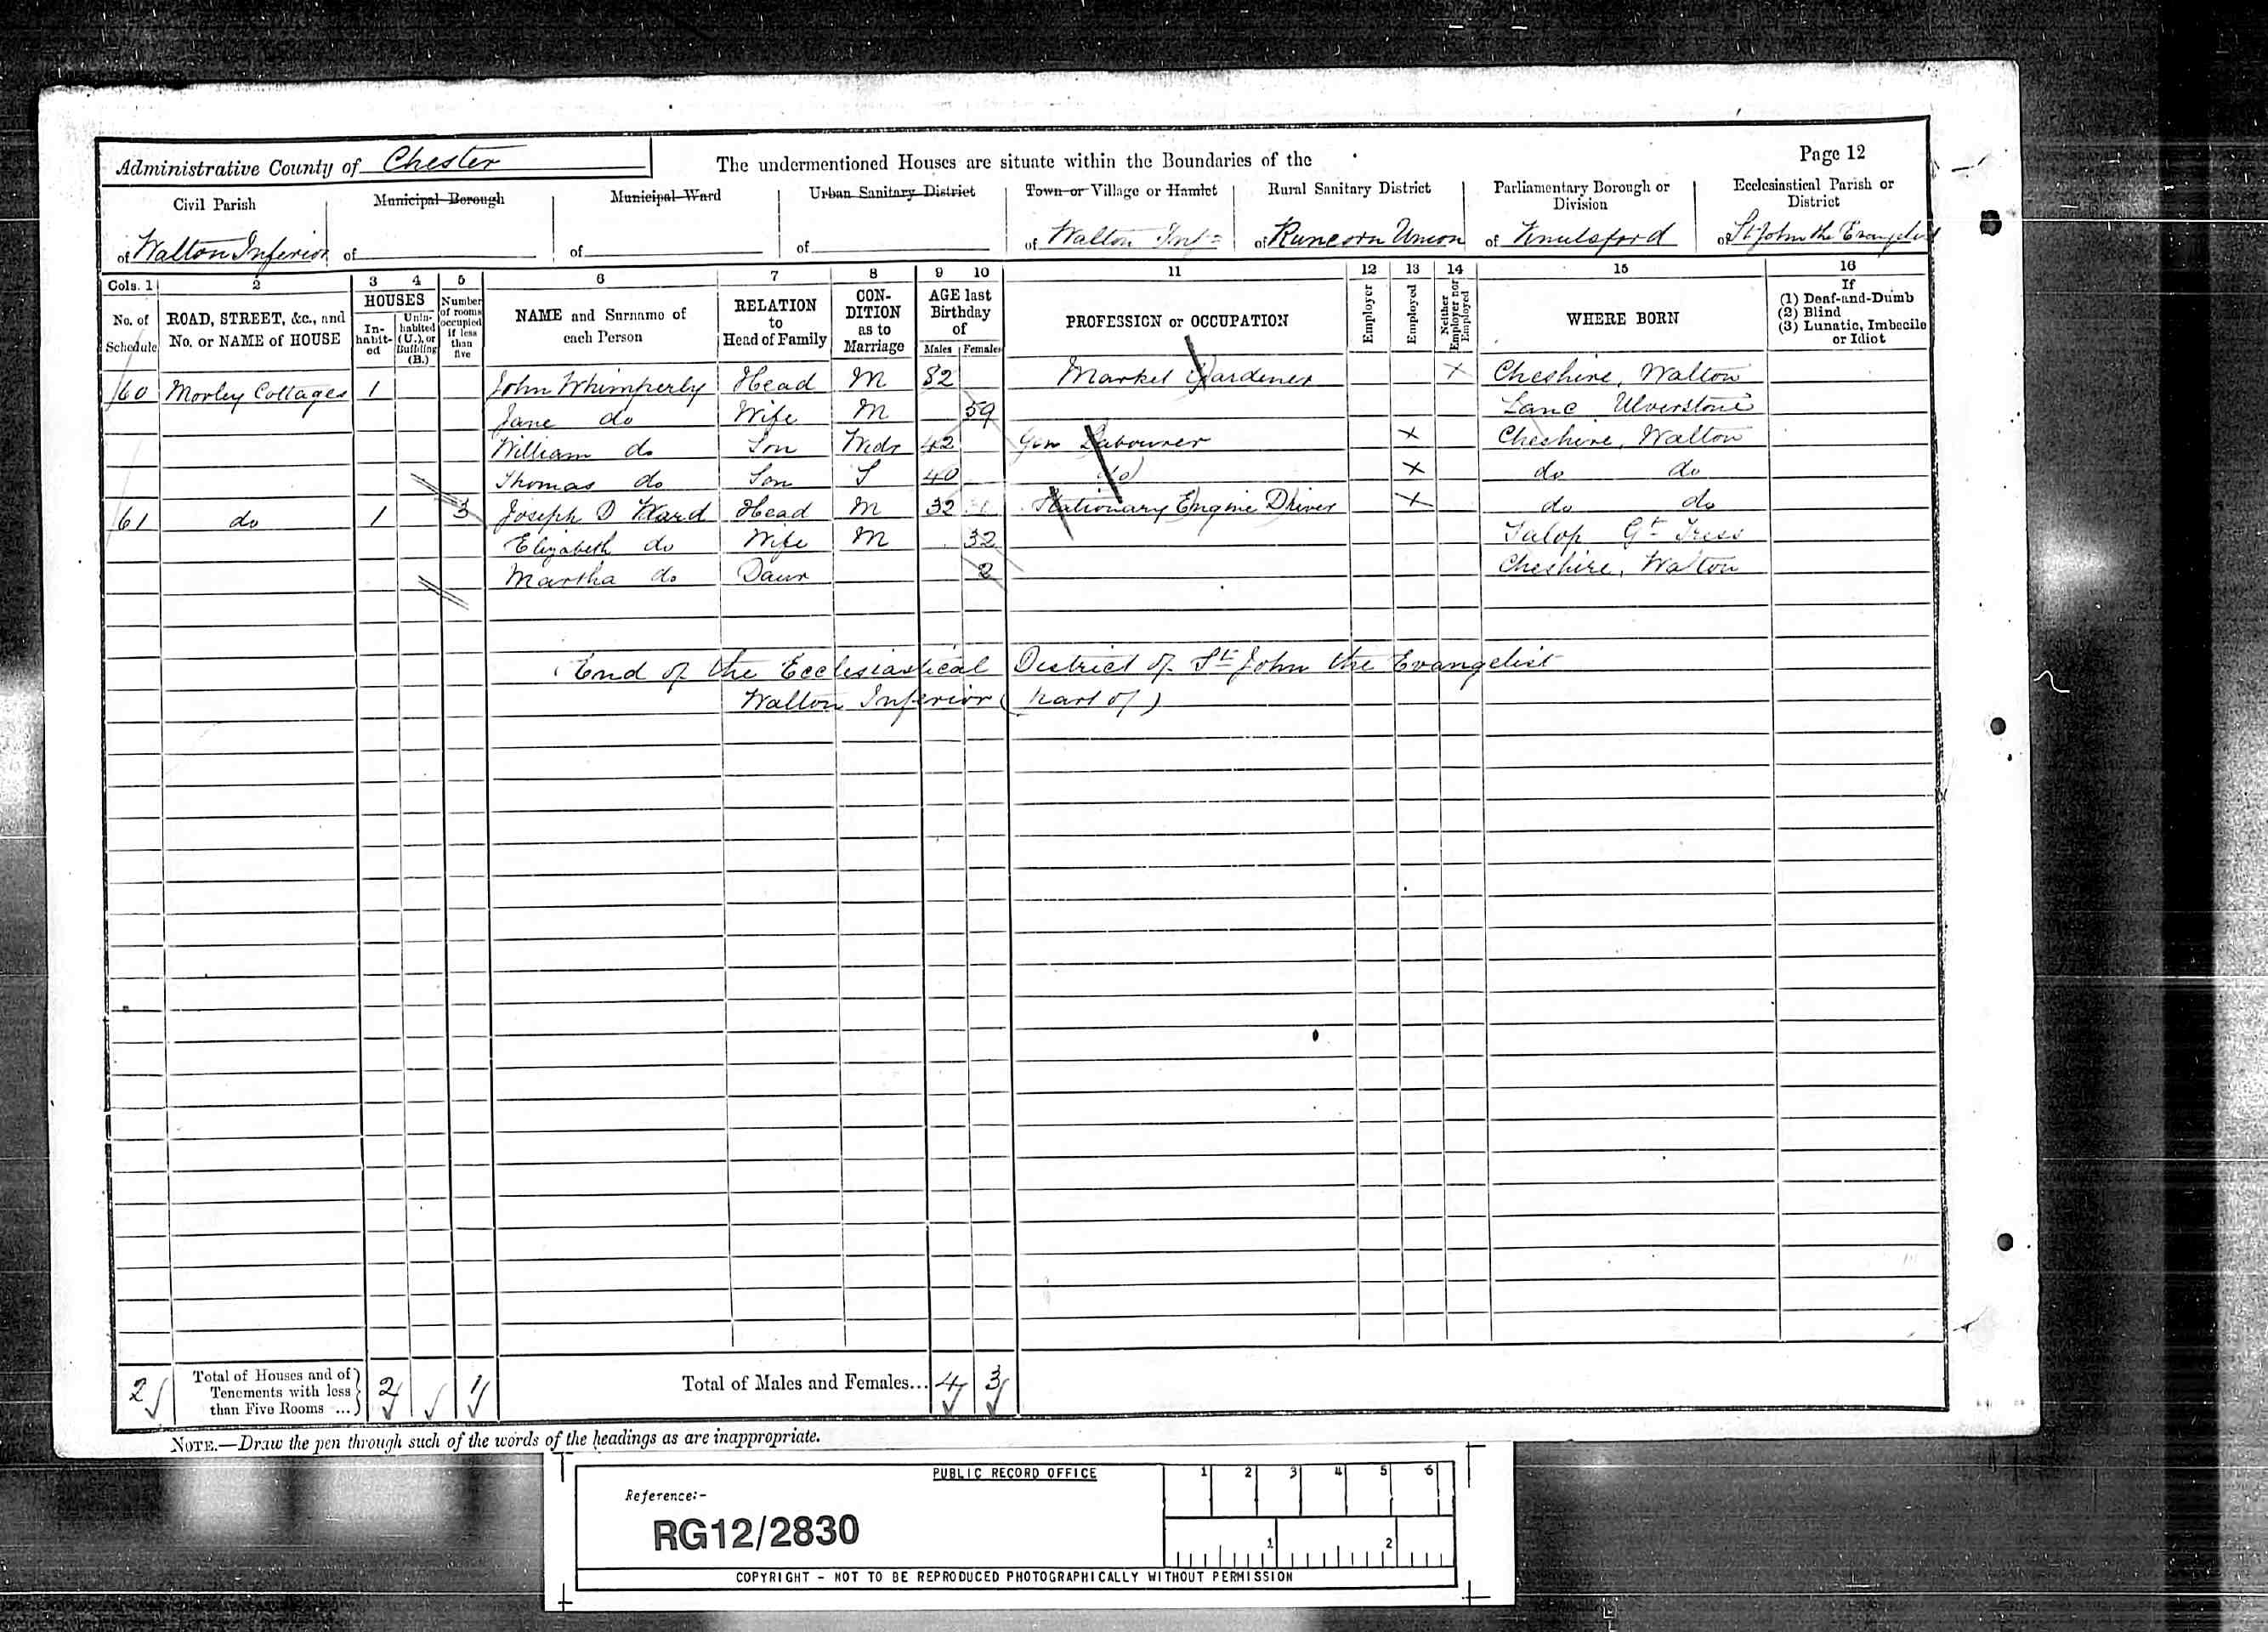 Administrative County of Chester
The undermentioned Houses are situate within the Boundaries of the
Page 12
Civil Parish of Walton Inferior
Municipal Borough of
Municipal Ward of
Urban Sanitary District of
Town or Village or Hamlet of Walton Infr
Rural Sanitary District of Runcorn Union
Parliamentary Borough or Division of Knutsford
Ecclesiastical Parish or District of St John the Evangelist
Cols. 1 2 3 4 5 6 7 8 9 10 11 12 13 14 15 16
No. of Schedule
ROAD, STREET, &c., and No. or NAME of HOUSE
HOUSES
In-habit-ed
Unin-habited (U.), or Building (B.)
Number of rooms occupied if less than five
NAME and Surname of each Person
RELATION to Head of Family
CON-DITION as to Marriage
AGE last Birthday of
Males Females
PROFESSION or OCCUPATION
Employer
Employed
Neither Employer nor Employed
WHERE BORN
If
(1) Deaf-and-Dumb
(2) Blind
(3) Lunatic, Imbecile or Idiot
60 Morley Cottages 1 John Whimperly Head M 82 Market Gardener X Cheshire, Walton
Jane do Wife M 59 Lanc Ulverstone
William do Son Widr 42 Gen Labourer X Cheshire, Walton
Thomas do Son S 40 do X do do
61 do 1 3 Joseph D Ward Head M 32 Stationary Engine Driver X do do
Elizabeth do Wife M 32 Salop Gt
Martha do Daur 2 Cheshire, Walton
End of the Ecclesiastical District of St John the Evangelist
Walton Inferior (part of)
2 Total of Houses and of Tenements with less than Five Rooms ... 2 1 Total of Males and Females... 4 3
NOTE.—Draw the pen through such of the words of the headings as are inappropriate.
PUBLIC RECORD OFFICE
1 2 3 4 5 6
Reference:-
RG12/2830
1 2
COPYRIGHT - NOT TO BE REPRODUCED PHOTOGRAPHICALLY WITHOUT PERMISSION